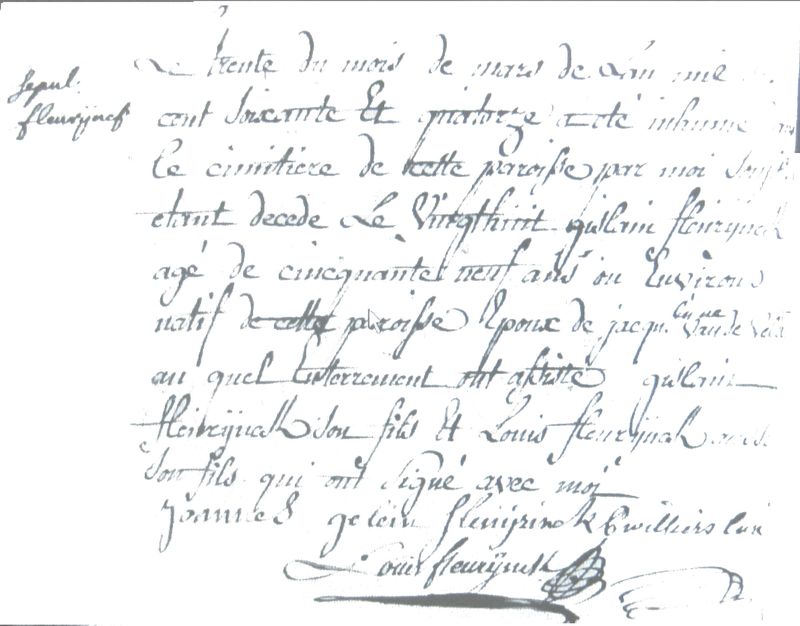 sepul.
fleurijnck
Le trente du mois de mars de Lan mil
cent soixante Et quatorze a eté inhumé
le cimitiere de cette paroisse par moi
etant decede Le Vingthuit gislain fleurijnck
agé de cincquante neuf ans ou Environs
natif de cette paroisse Epoux de jacqu. Vande
au quel Enterrement ont assisté gislain
fleurijnck son fils Et Louis fleurijnck aussi
son fils qui ont signé avec moi
Joannes gelein fleurijnck
Louis fleurijnck